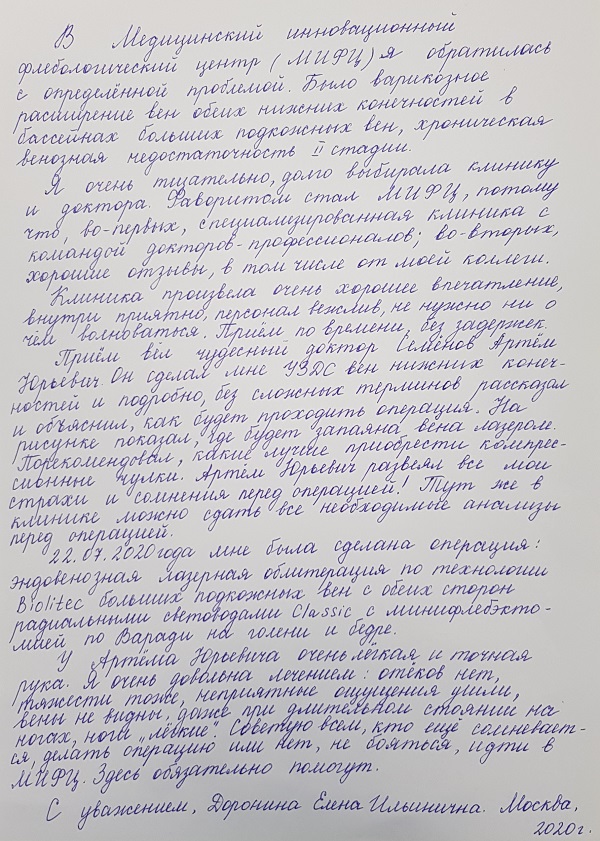 В Медицинский инновационный
флебологический центр (МИФЦ) я обратилась
с определённой проблемой. Было варикозное
расширение вен обеих нижних конечностей в
бассейнах больших подкожных вен, хроническая
венозная недостаточность II стадии.
Я очень тщательно, долго выбирала клинику
и доктора. Фаворитом стал МИФЦ, потому
что, во-первых, специализированная клиника с
командой докторов-профессионалов; во-вторых,
хорошие отзывы, в том числе от моей коллеги.
Клиника произвела очень хорошее впечатление,
внутри приятно, персонал вежлив, не нужно ни о
чём волноваться. Приём по времени, без задержек.
Приём вёл чудесный доктор Семёнов Артём
Юрьевич. Он сделал мне УЗДС вен нижних конеч-
ностей и подробно, без сложных терминов рассказал
и объяснил, как будет проходить операция. На
рисунке показал, где будет запаяна вена лазером.
Порекомендовал, какие лучше приобрести компрес-
сионные чулки. Артём Юрьевич развеял все мои
страхи и сомнения перед операцией! Тут же в
клинике можно сдать все необходимые анализы
перед операцией.
22.07.2020 года мне была сделана операция:
эндовенозная лазерная облитерация по технологии
Biolitec больших подкожных вен с обеих сторон
радиальными световодами Classic с минифлебэкто-
мией по Варади на голени и бедре.
У Артёма Юрьевича очень лёгкая и точная
рука. Я очень довольна лечением: отёков нет,
тяжести тоже, неприятные ощущения ушли,
вены не видны, даже при длительном стоянии на
ногах, ноги „лёгкие". Советую всем, кто ещё сомневает-
ся, делать операцию или нет, не бояться, идти в
МИФЦ. Здесь обязательно помогут.
С уважением, Доронина Елена Ильинична. Москва,
2020г.